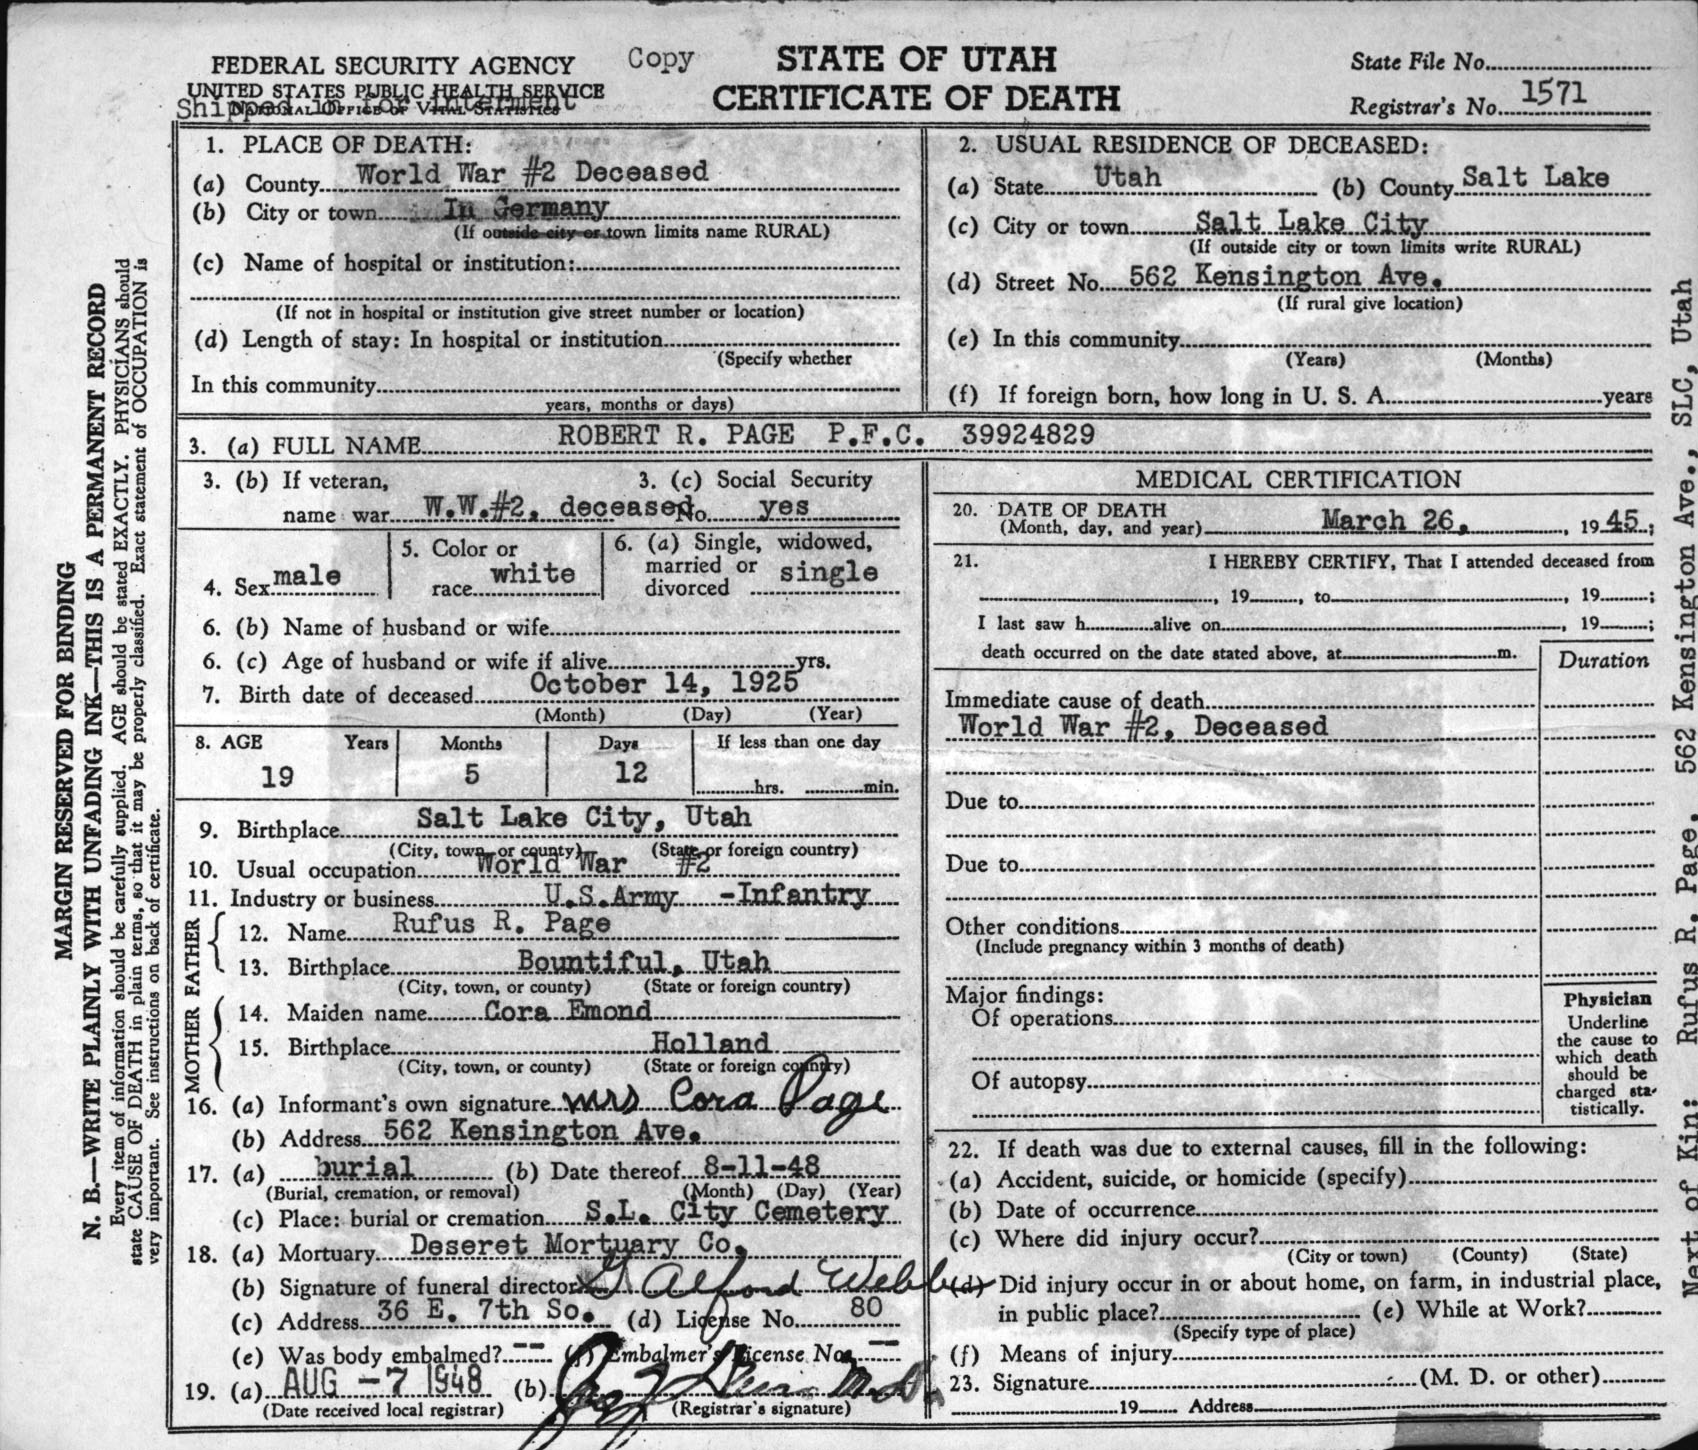 FEDERAL SECURITY AGENCY
UNITED STATES PUBLIC HEALTH SERVICE
NATIONAL OFFICE OF VITAL STATISTICS
Shipped in for Interment
Copy
STATE OF UTAH
CERTIFICATE OF DEATH
State File No.
Registrar's No. 1571
1. PLACE OF DEATH:
(a) County World War #2 Deceased
(b) City or town In Germany
(If outside city or town limits name RURAL)
(c) Name of hospital or institution:
(If not in hospital or institution give street number or location)
(d) Length of stay: In hospital or institution
(Specify whether
In this community
years, months or days)
2. USUAL RESIDENCE OF DECEASED:
(a) State Utah (b) County Salt Lake
(c) City or town Salt Lake City
(If outside city or town limits write RURAL)
(d) Street No. 562 Kensington Ave.
(If rural give location)
(e) In this community
(Years) (Months)
(f) If foreign born, how long in U. S. A. years
3. (a) FULL NAME ROBERT R. PAGE P.F.C. 39924829
3. (b) If veteran, 3. (c) Social Security
name war W.W.#2, deceased No. yes
4. Sex male
5. Color or
race white
6. (a) Single, widowed,
married or
divorced single
6. (b) Name of husband or wife
6. (c) Age of husband or wife if alive yrs.
7. Birth date of deceased October 14, 1925
(Month) (Day) (Year)
8. AGE Years Months Days If less than one day
19 5 12 hrs. min.
9. Birthplace Salt Lake City, Utah
(City, town, or county) (State or foreign country)
10. Usual occupation World War #2
11. Industry or business U.S.Army -Infantry
FATHER
12. Name Rufus R. Page
13. Birthplace Bountiful, Utah
(City, town, or county) (State or foreign country)
MOTHER
14. Maiden name Cora Emond
15. Birthplace Holland
(City, town, or county) (State or foreign country)
16. (a) Informant's own signature Mrs Cora Page
(b) Address 562 Kensington Ave.
17. (a) burial (b) Date thereof 8-11-48
(Burial, cremation, or removal) (Month) (Day) (Year)
(c) Place: burial or cremation S.L. City Cemetery
18. (a) Mortuary Deseret Mortuary Co.
(b) Signature of funeral director Alford Webb
(c) Address 36 E. 7th So. (d) License No. 80
(e) Was body embalmed? -- (f) Embalmer's License No. --
19. (a) AUG -7 1948 (b)
(Date received local registrar) (Registrar's signature)
MEDICAL CERTIFICATION
20. DATE OF DEATH
(Month, day, and year) March 26, , 1945;
21. I HEREBY CERTIFY, That I attended deceased from
, 19 , to , 19 ;
I last saw h alive on , 19 ;
death occurred on the date stated above, at m.
Duration
Immediate cause of death
World War #2, Deceased
Due to
Due to
Other conditions
(Include pregnancy within 3 months of death)
Major findings:
Of operations
Of autopsy
Physician
Underline
the cause to
which death
should be
charged sta-
tistically.
22. If death was due to external causes, fill in the following:
(a) Accident, suicide, or homicide (specify)
(b) Date of occurrence
(c) Where did injury occur?
(City or town) (County) (State)
(d) Did injury occur in or about home, on farm, in industrial place,
in public place? (e) While at Work?
(Specify type of place)
(f) Means of injury
23. Signature (M. D. or other)
19 Address
MARGIN RESERVED FOR BINDING
N. B.—WRITE PLAINLY WITH UNFADING INK—THIS IS A PERMANENT RECORD
Every item of information should be carefully supplied. AGE should be stated EXACTLY. PHYSICIANS should
state CAUSE OF DEATH in plain terms, so that it may be properly classified. Exact statement of OCCUPATION is
very important. See instructions on back of certificate.
Next of Kin: Rufus R. Page, 562 Kensington Ave., SLC, Utah